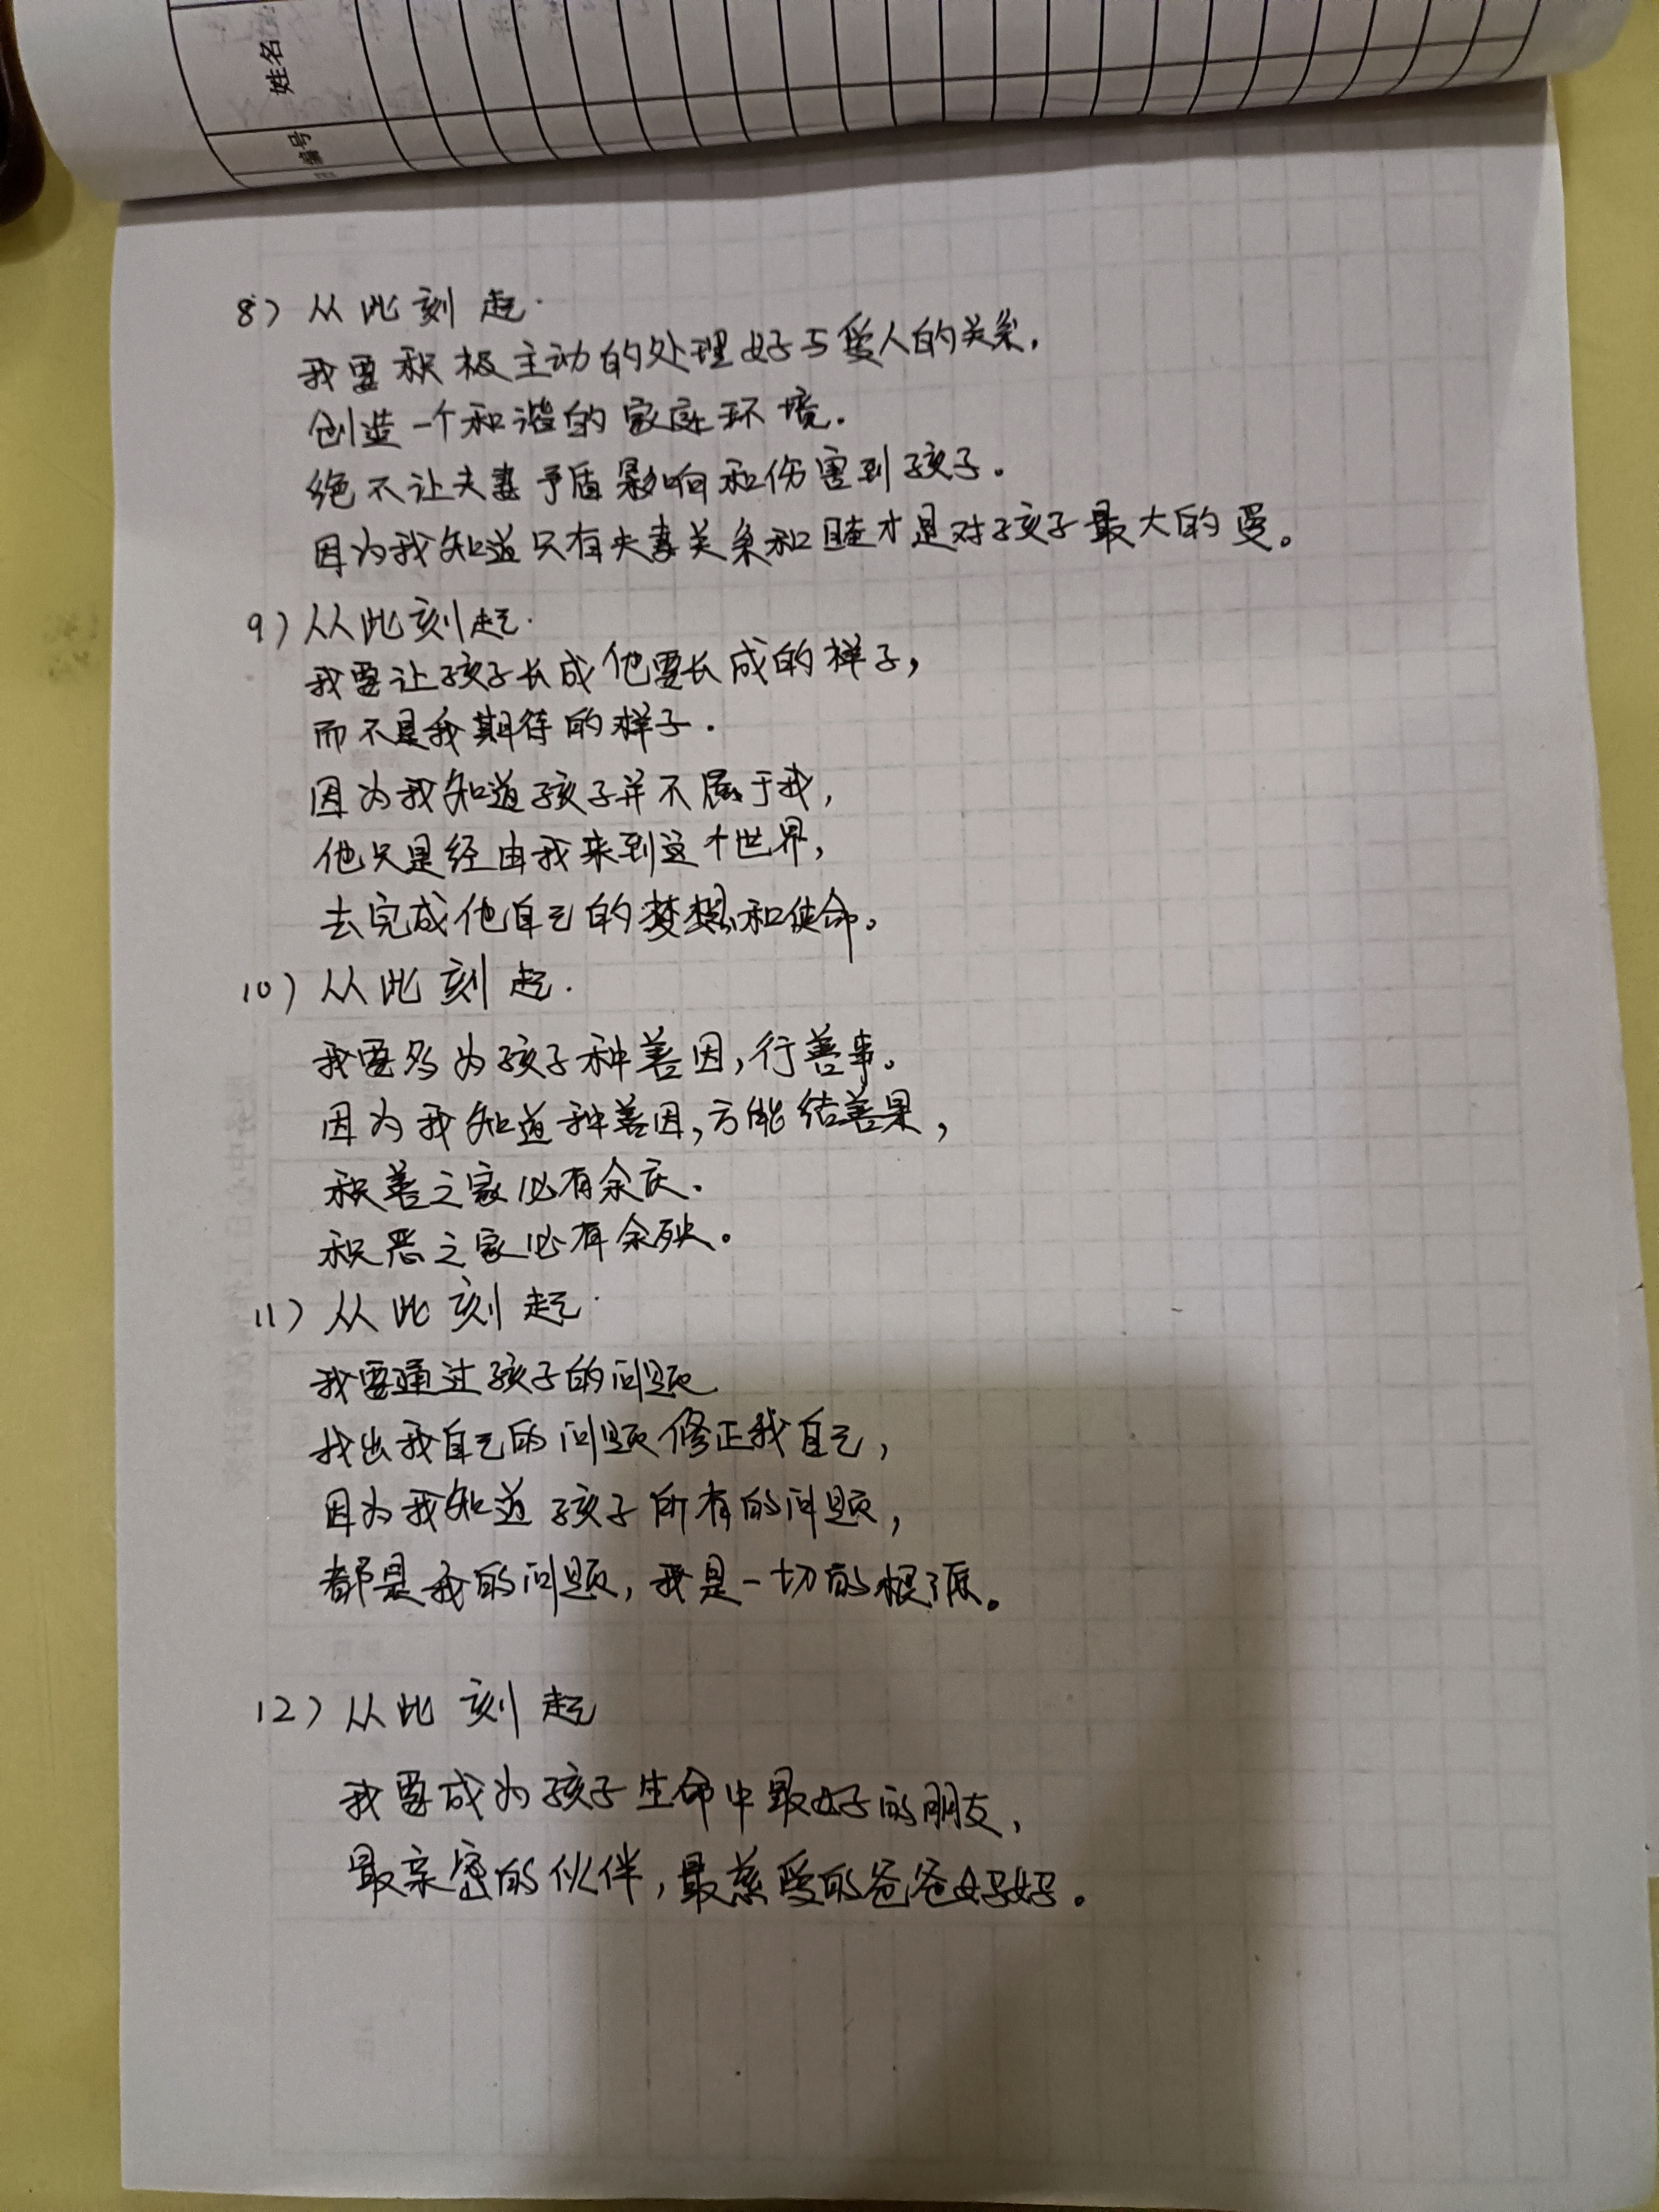 姓名
编号
8) 从此刻起.
我要积极主动的处理好与爱人的关系,
创造一个和谐的家庭环境.
绝不让夫妻矛盾影响和伤害到孩子。
因为我知道只有夫妻关系和睦才是对孩子最大的爱。
9) 从此刻起.
我要让孩子长成他要长成的样子,
而不是我期待的样子.
因为我知道孩子并不属于我,
他只是经由我来到这个世界,
去完成他自己的梦想和使命。
10) 从此刻起.
我要多为孩子种善因,行善事。
因为我知道种善因,方能结善果,
积善之家必有余庆.
积恶之家必有余殃。
11) 从此刻起.
我要通过孩子的问题
找出我自己的问题修正我自己,
因为我知道孩子所有的问题,
都是我的问题,我是一切的根源。
12) 从此刻起
我要成为孩子生命中最好的朋友,
最亲密的伙伴,最慈爱的爸爸妈妈。